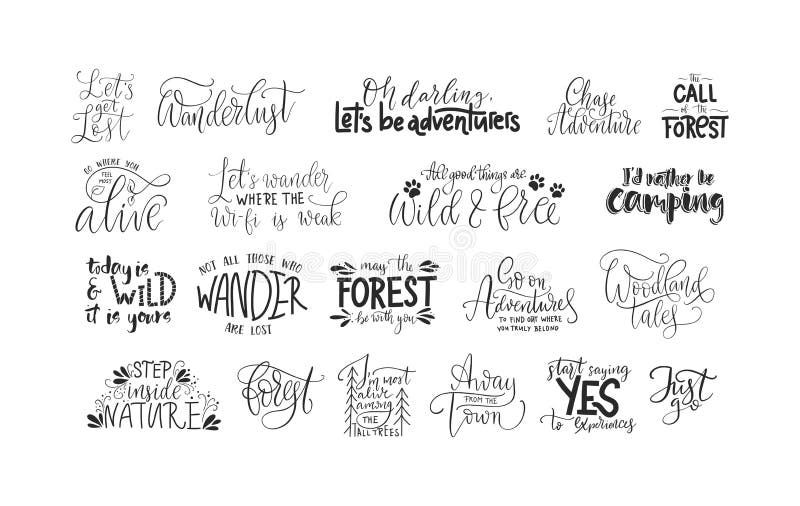 Let's
get
Lost
Wanderlust
Oh darling,
Let's be adventurers
Chase
Adventure
the
CALL
of the
FOREST
GO WHERE YOU
FEEL
MOST
alive
Let's wander
WHERE THE
Wi-fi is weak
All good things are
Wild & free
I'd rather be
camping
today is
& WILD
it is yours
NOT ALL THOSE WHO
WANDER
ARE LOST
may the
FOREST
be with you
Go on
Adventures
TO FIND OUT WHERE
YOU TRULY BELONG
Woodland
tales
STEP
inside
NATURE
forest
I'm most
alive
among
THE
TALL TREES
Away
FROM THE
Town
start saying
YES
to experiences
Just
go